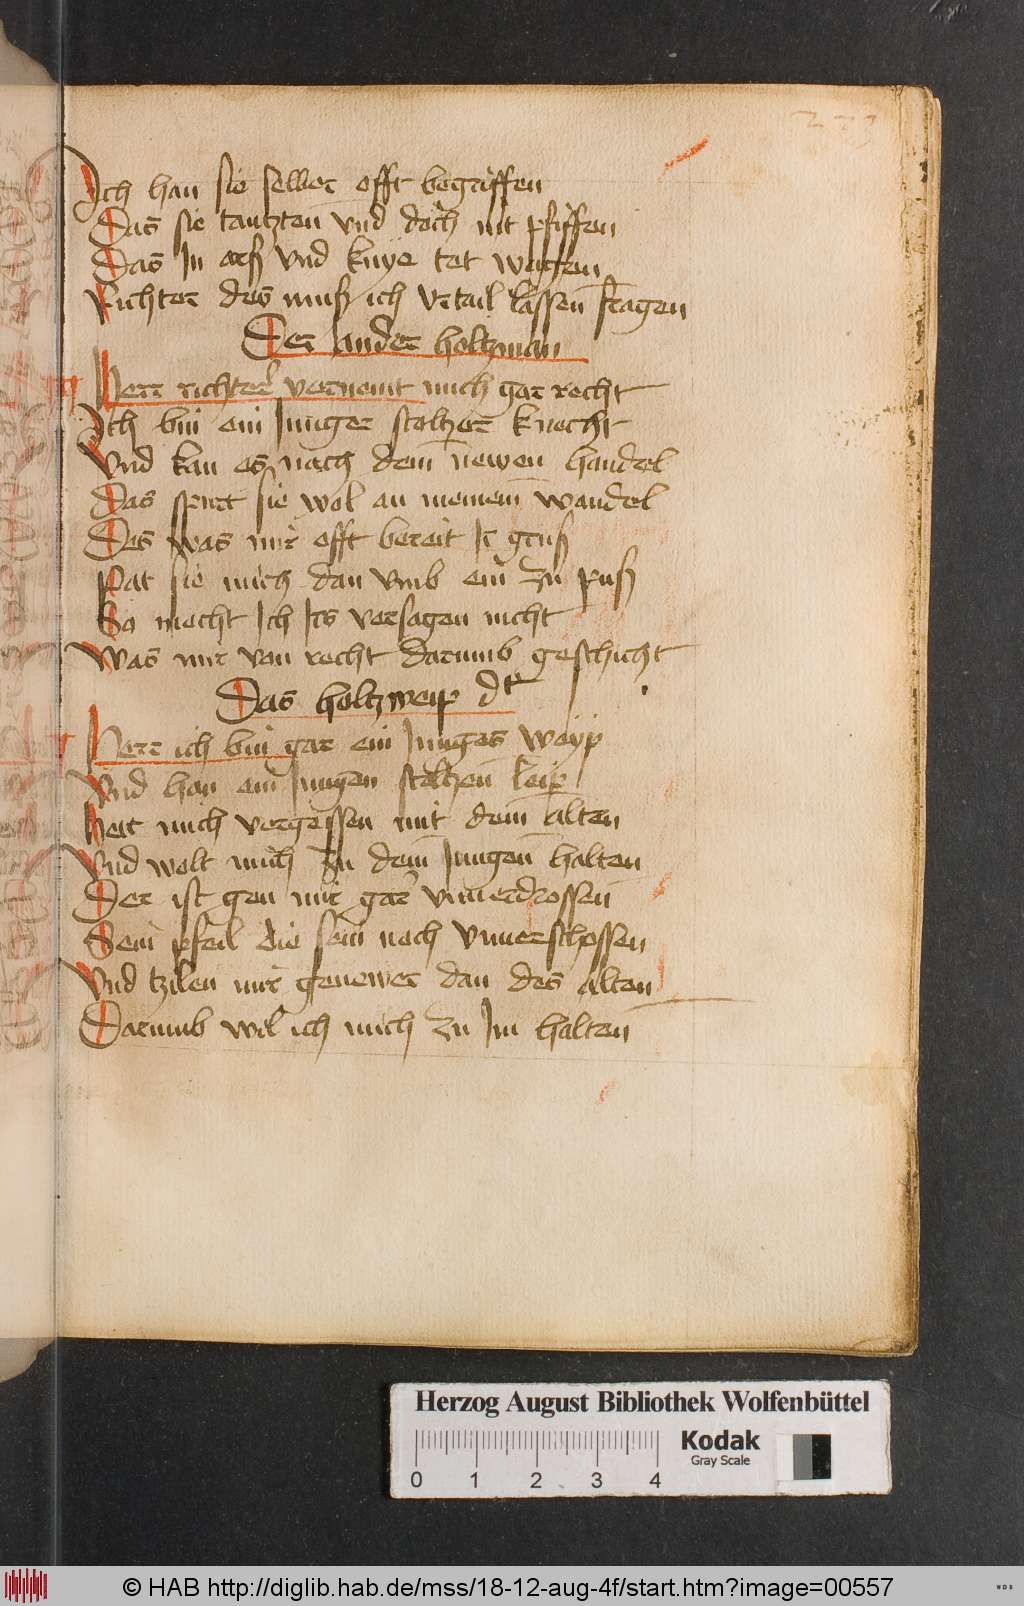 Ich han sie selber offt begriffen
Das sie tantzten vnd doch nit pfiffen
Das In ars vnd knye tet wagen
Richter des muß ich vrtail lassen fragen
Der ander holtzman
Herr richter vernemt mich gar recht
Ich bin ein Junger stoltzer knecht
Vnd kan es nach dem newen handel
Das spurt sie wol an meinem wandel
Des was mir offt bereit Ir gruß
Pat sie mich dan vmb ein zu puß
So mocht Ich Irs versagen nicht
Was mir von recht darumb geschicht
Das holtzweip dt
Herr ich bin gar ein Junges weyp
Vnd han ein Jungen stoltzen leip
Heit mich vergessen mit dem alten
Vnd wolt mich zu dem Jungen halten
Der ist gen mir gar vnuerdrossen
Sein pfeil die sein noch vnuerschossen
Vnd tzilen mir genewer dan des alten
Darumb wil ich mich zu Im halten
Herzog August Bibliothek Wolfenbüttel
Kodak
Gray Scale
0 1 2 3 4
© HAB http://diglib.hab.de/mss/18-12-aug-4f/start.htm?image=00557